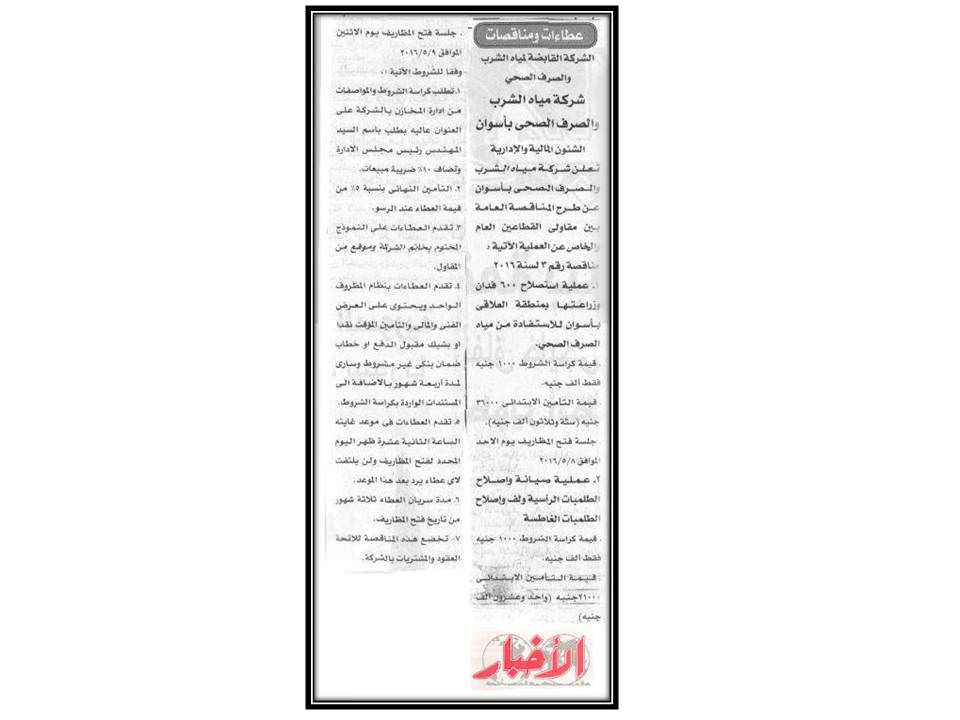 عطاءات ومناقصات
الشركة القابضة لمياه الشرب
والصرف الصحي
شركة مياه الشرب
والصرف الصحى بأسوان
الشئون المالية والإدارية
تعلن شركة مياه الشرب
والصرف الصحى بأسوان
عن طرح المناقصة العامة
بين مقاولى القطاعين العام
والخاص عن العملية الآتية :
مناقصة رقم ٣ لسنة ٢٠١٦
١. عملية استصلاح ٦٠٠ فدان
وزراعتها بمنطقة العلاقى
بأسوان للاستفادة من مياه
الصرف الصحي.
. قيمة كراسة الشروط ١٠٠٠ جنيه
فقط ألف جنيه.
. قيمة التأمين الابتدائى ٣٦٠٠٠
جنيه (ستة وثلاثون ألف جنيه).
. جلسة فتح المظاريف يوم الاحد
الموافق ٢٠١٦/٥/٨
٢. عملية صيانة وإصلاح
الطلمبات الرأسية ولف وإصلاح
الطلمبات الغاطسة
. قيمة كراسة الشروط ١٠٠٠ جنيه
فقط ألف جنيه.
. قيمة التأمين الابتدائى
٢١٠٠٠جنيه (واحد وعشرون ألف
جنيه)
. جلسة فتح المظاريف يوم الاثنين
الموافق ٢٠١٦/٥/٩
وفقا للشروط الآتية :.
١. تطلب كراسة الشروط والمواصفات
من ادارة المخازن بالشركة على
العنوان عاليه بطلب باسم السيد
المهندس رئيس مجلس الادارة
وتضاف ١٠٪ ضريبة مبيعات.
٢. التأمين النهائى بنسبة ٥٪ من
قيمة العطاء عند الرسو.
٣. تقدم العطاءات على النموذج
المختوم بخاتم الشركة وموقع من
المقاول.
٤. تقدم العطاءات بنظام المظروف
الواحد ويحتوى على العرض
الفنى والمالى والتأمين المؤقت نقدا
او بشيك مقبول الدفع او خطاب
ضمان بنكى غير مشروط وسارى
لمدة أربعة شهور بالاضافة الى
المستندات الواردة بكراسة الشروط.
٥. تقدم العطاءات فى موعد غايته
الساعة الثانية عشرة ظهر اليوم
المحدد لفتح المظاريف ولن يلتفت
لاى عطاء يرد بعد هذا الموعد.
٦. مدة سريان العطاء ثلاثة شهور
من تاريخ فتح المظاريف.
٧- تخضع هذه المناقصة للائحة
العقود والمشتريات بالشركة.
الأخبار